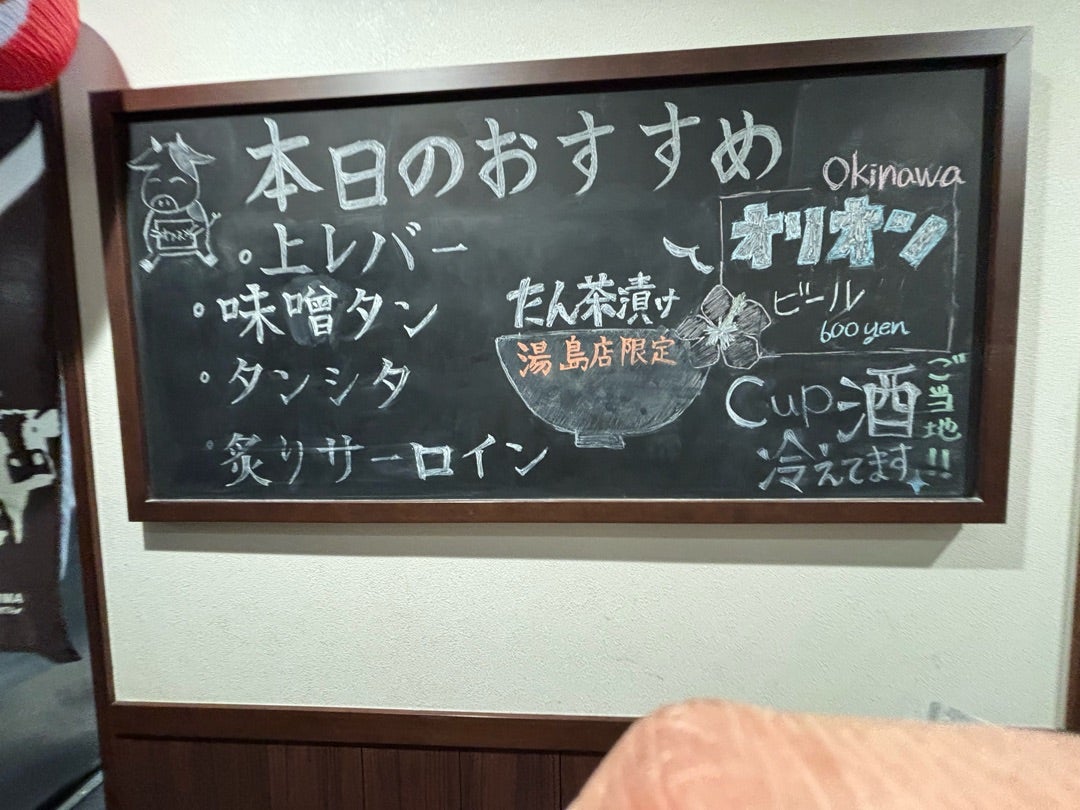 本日のおすすめ
○上レバー
○味噌タン
○タンシタ
○炙りサーロイン
たん茶漬け
湯島店限定
Okinawa
オリオン
ビール
600yen
Cup酒
ご当地
冷えてます!!